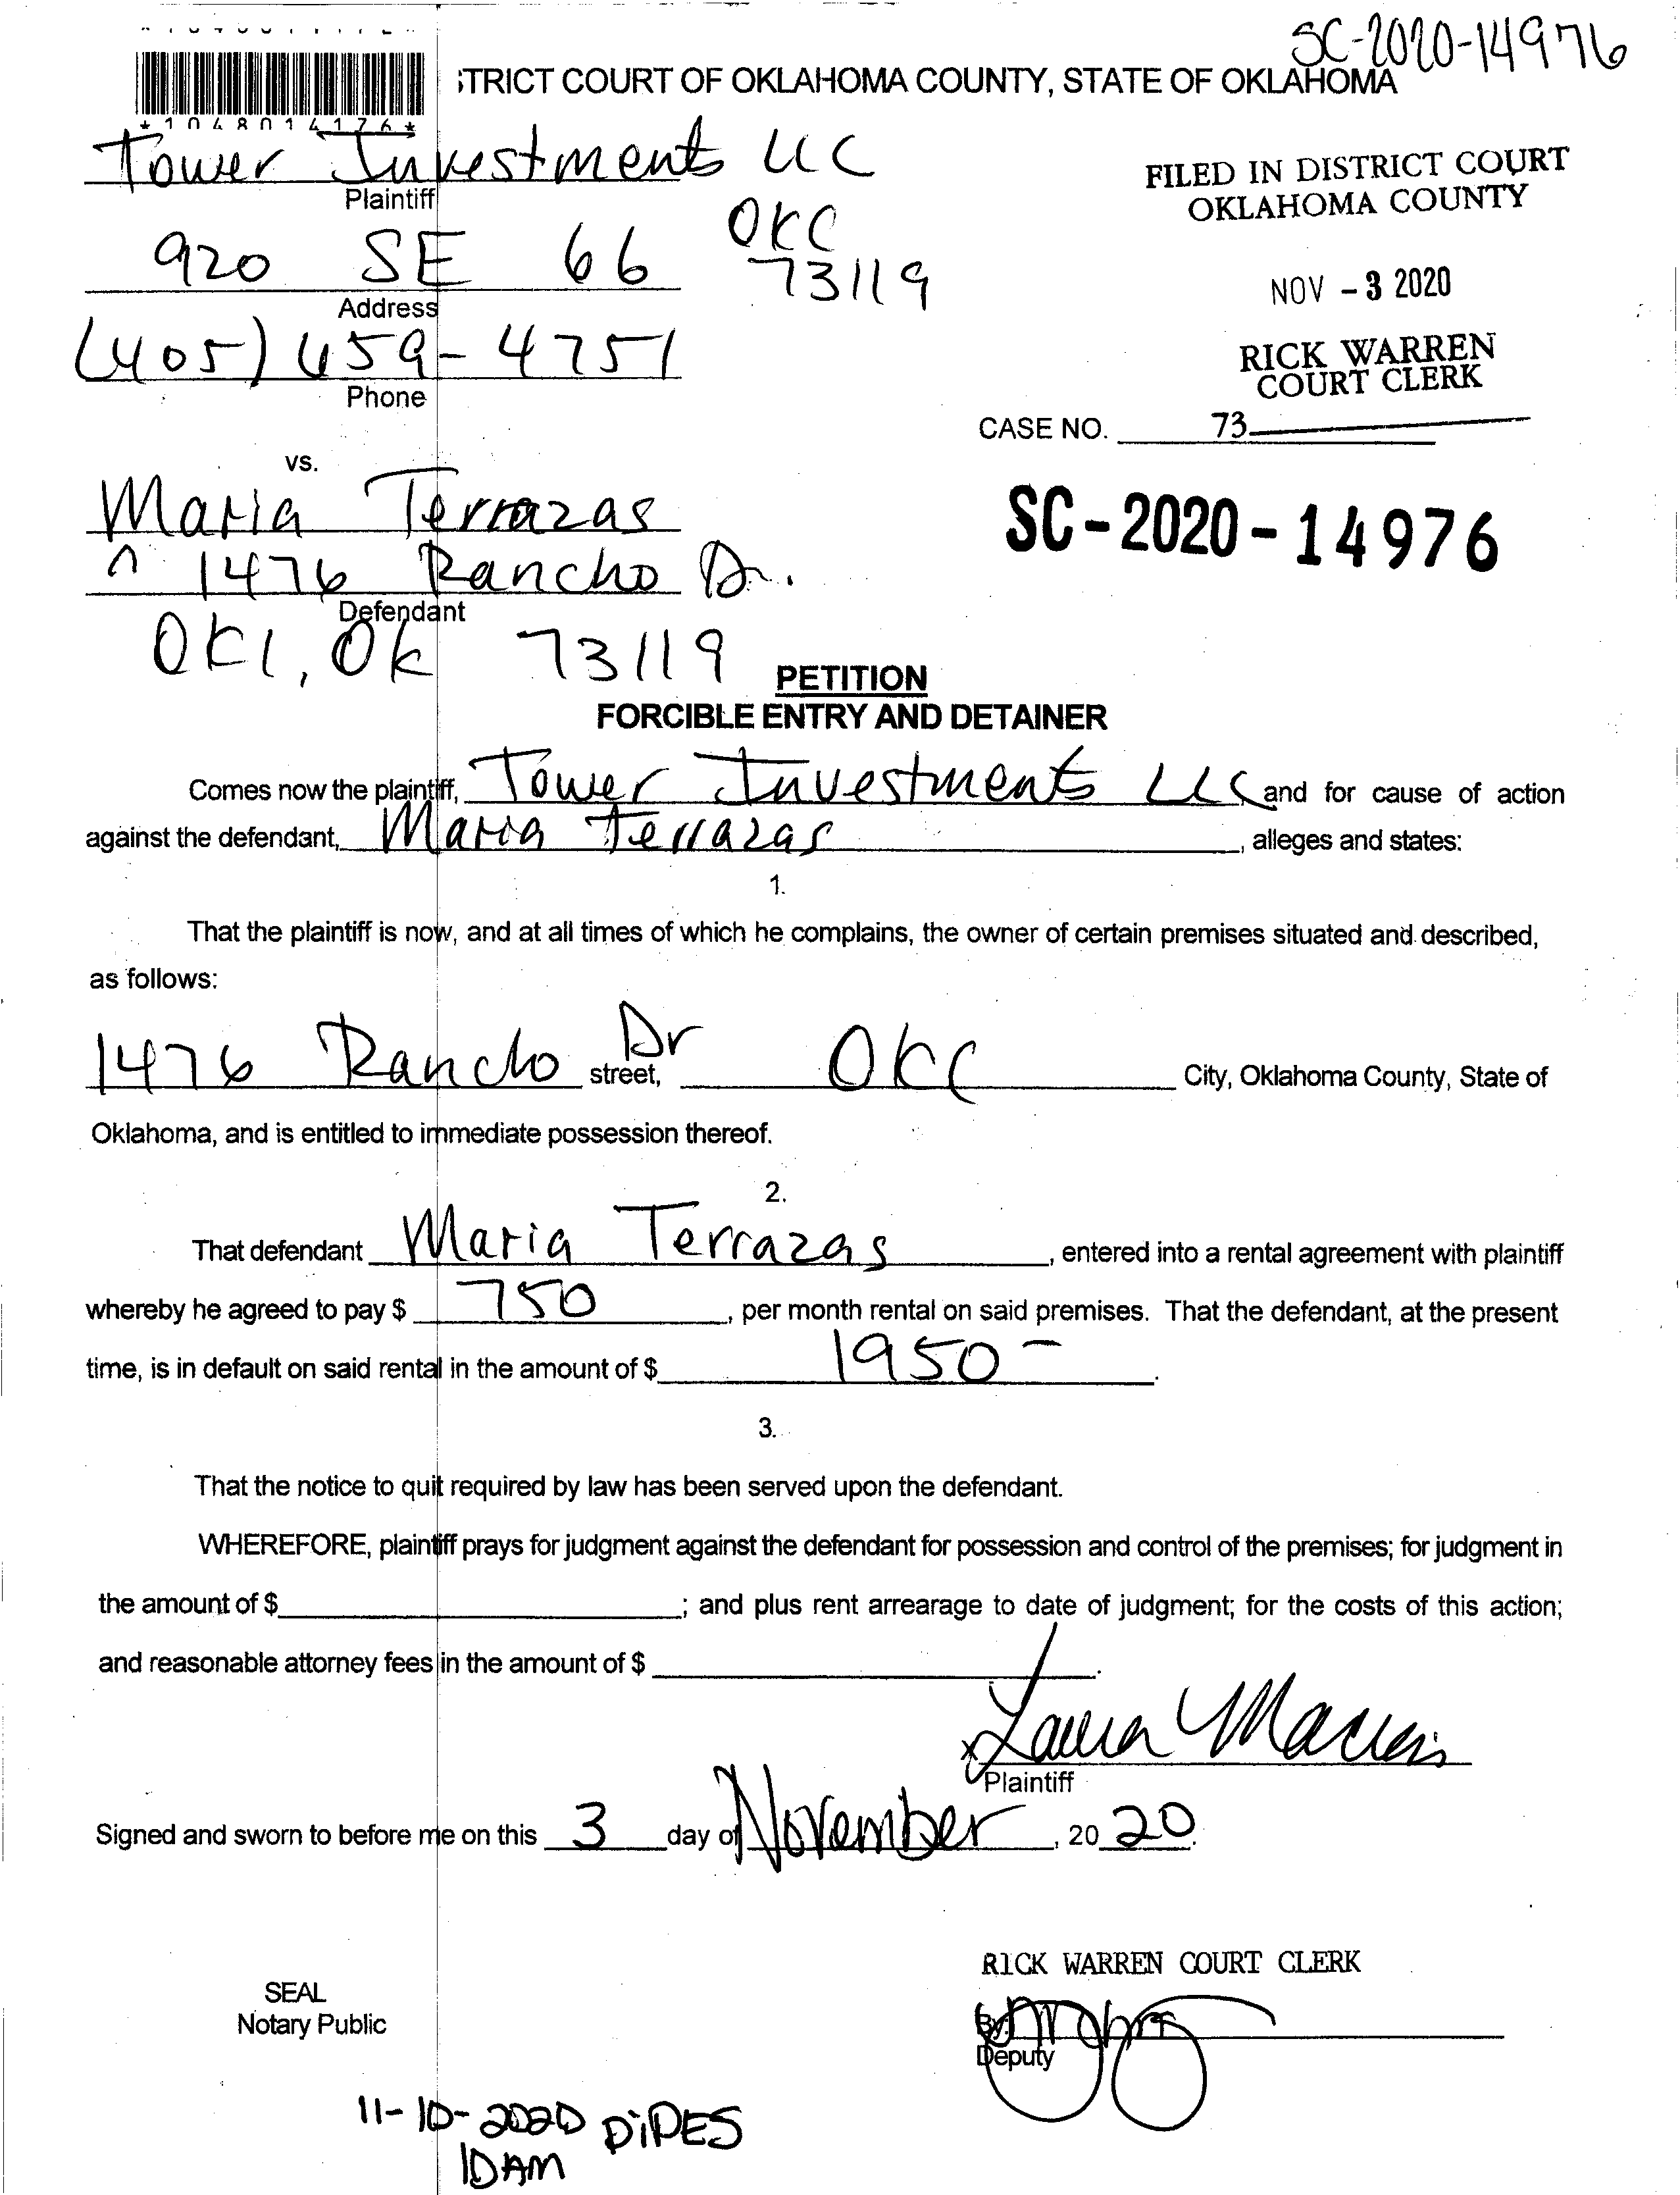 SC-2020-14976
TRICT COURT OF OKLAHOMA COUNTY, STATE OF OKLAHOMA
*1048014176*
Tower Investments LLC
Plaintiff
FILED IN DISTRICT COURT
OKLAHOMA COUNTY
920 SE 66 OKC
73119
Address
NOV - 3 2020
(405) 659-4751
Phone
RICK WARREN
COURT CLERK
CASE NO. 73
vs.
Maria Terrazas
SC-2020-14976
1476 Rancho Dr.
Defendant
OKC, Ok 73119
PETITION
FORCIBLE ENTRY AND DETAINER
Comes now the plaintiff, Tower Investments LLC and for cause of action
against the defendant, Maria Terrazas, alleges and states:
1.
That the plaintiff is now, and at all times of which he complains, the owner of certain premises situated and described,
as follows:
1476 Rancho Dr street, OKC City, Oklahoma County, State of
Oklahoma, and is entitled to immediate possession thereof.
2.
That defendant Maria Terrazas, entered into a rental agreement with plaintiff
whereby he agreed to pay $ 750, per month rental on said premises. That the defendant, at the present
time, is in default on said rental in the amount of $ 1950-.
3.
That the notice to quit required by law has been served upon the defendant.
WHEREFORE, plaintiff prays for judgment against the defendant for possession and control of the premises; for judgment in
the amount of $ ; and plus rent arrearage to date of judgment; for the costs of this action;
and reasonable attorney fees in the amount of $ .
x Laura
Plaintiff
Signed and sworn to before me on this 3 day of November, 20 20.
RICK WARREN COURT CLERK
SEAL
Notary Public
By:
Deputy
11-10-2020 DiPES
10AM